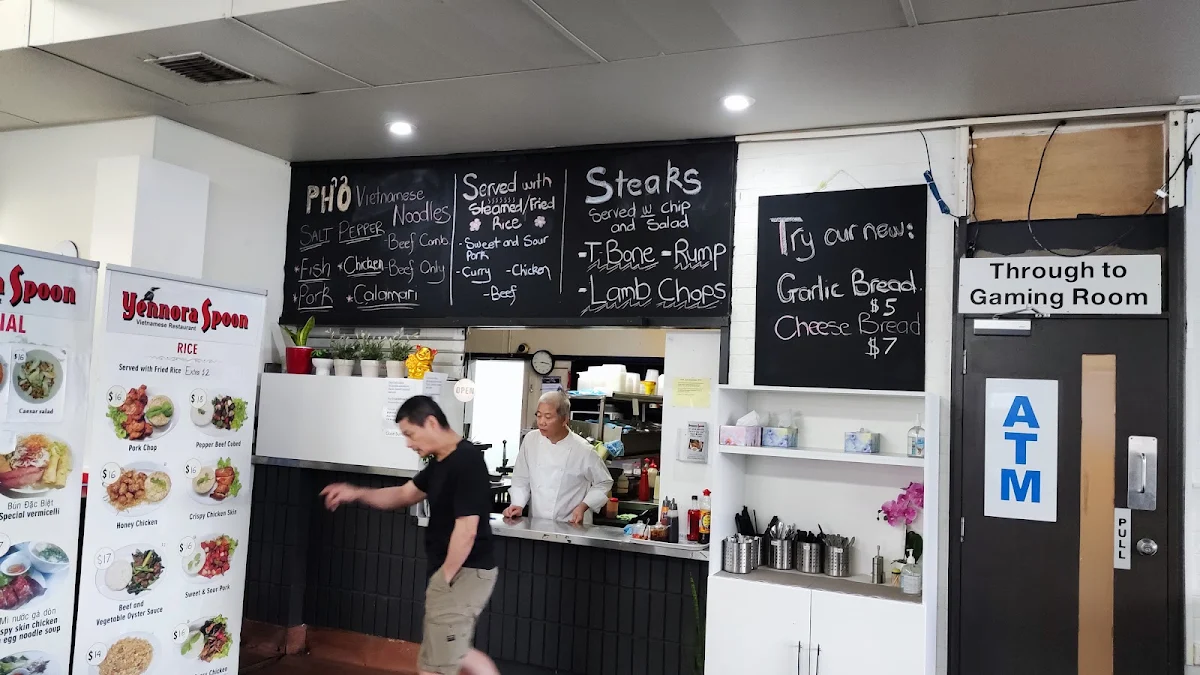 a Spoon
IAL
$16
Caesar salad
Bún Đặc Biệt
Special vermicelli
Mì nước gà dòn
spy skin chicken
egg noodle soup
Yennora Spoon
Vietnamese Restaurant
RICE
Served with Fried Rice Extra $2
$16
Pork Chop
Pepper Beef Cubed
$16
Honey Chicken
$16
Crispy Chicken Skin
$17
Beef and
Vegetable Oyster Sauce
Sweet & Sour Pork
$14
Chicken
PHỞ Vietnamese
Noodles
SALT PEPPER
-Beef Comb.
*Fish *Chicken -Beef Only
*Pork *Calamari
Served with
Steamed/Fried
Rice
-Sweet and Sour
Pork
-Curry -Chicken
-Beef
Steaks
Served w Chip
and Salad
-T.Bone -Rump
-Lamb Chops
OPEN
Try our new:
Garlic Bread.
$5
Cheese Bread
$7
Through to
Gaming Room
ATM
PULL